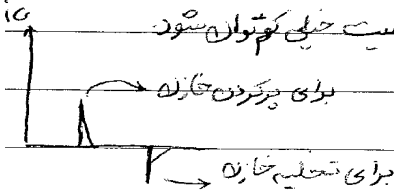 iG
گیت خیلی کم توان شود
برای پرکردن خازن
برای تخلیه خازن